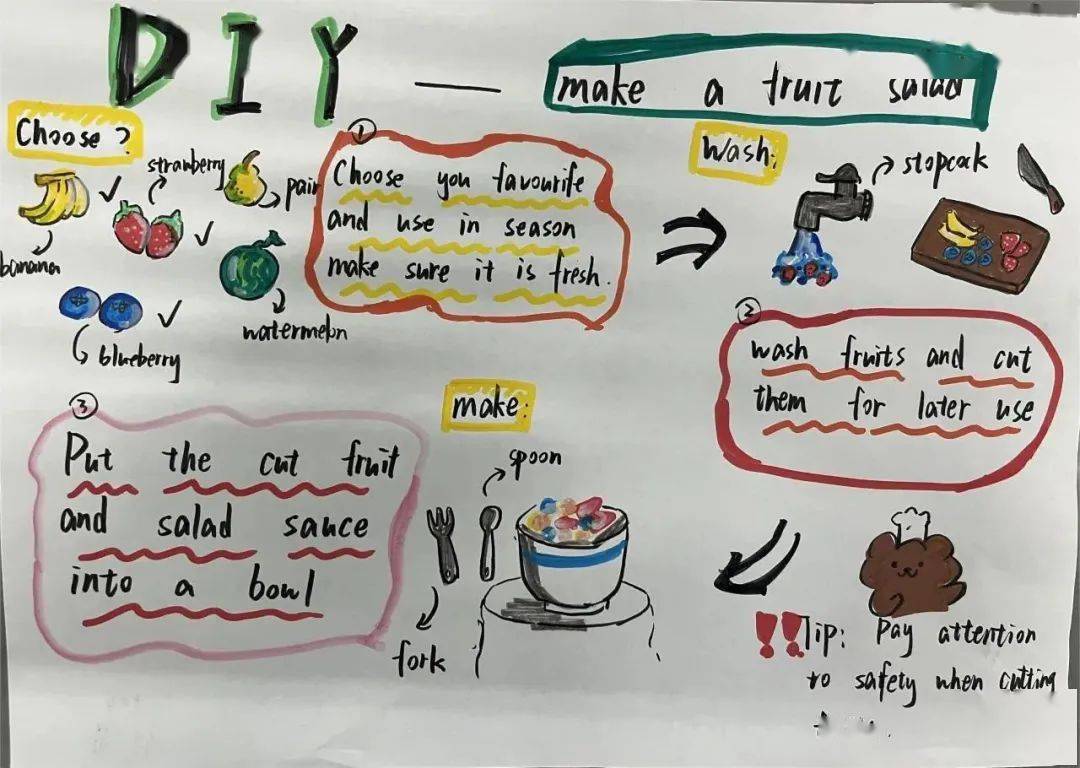 DIY — make a fruit salad
Choose?
stranberry
pair
banana
watermelon
blueberry
①
Choose you favourite
and use in season
make sure it is fresh.
Wash:
stopcok
②
wash fruits and cut
them for later use
③
Put the cut fruit
and salad sauce
into a bowl
make:
spoon
fork
!! Tip: Pay attention
to safety when cutting